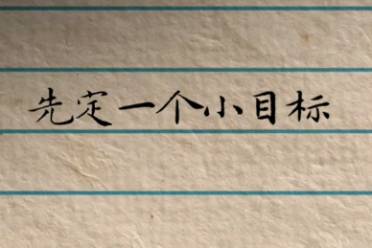 先定一个小目标